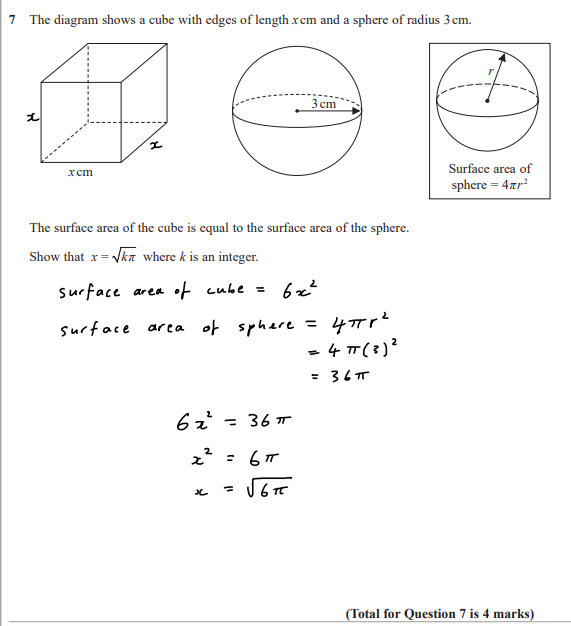 7 The diagram shows a cube with edges of length x cm and a sphere of radius 3 cm.
x
x
x cm
3 cm
r
Surface area of
sphere = 4πr²
The surface area of the cube is equal to the surface area of the sphere.
Show that x = √kπ where k is an integer.
surface area of cube = 6x²
surface area of sphere = 4πr²
= 4π(3)²
= 36π
6x² = 36π
x² = 6π
x = √6π
(Total for Question 7 is 4 marks)